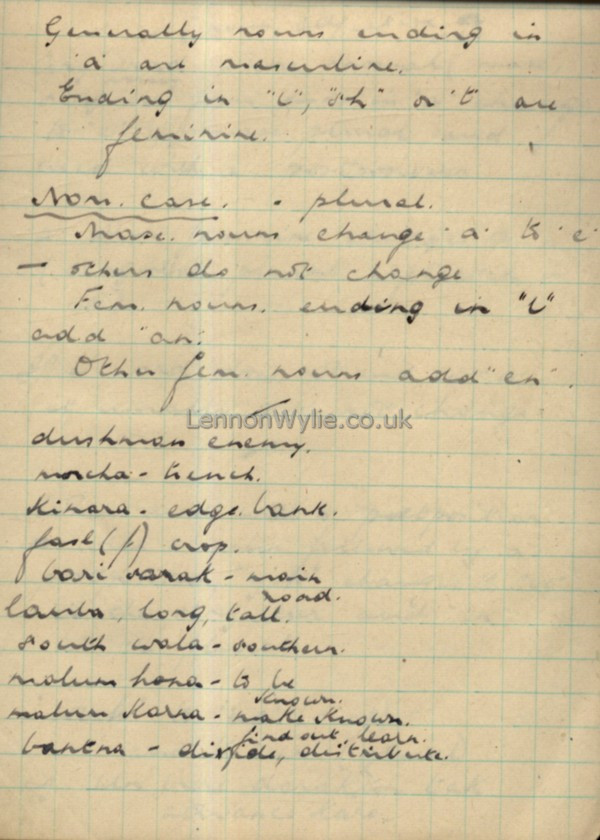 Generally nouns ending in
'a' are masculine.
Ending in "i", "sh" or 't' are
feminine.
Nom. case. - plural.
Masc. nouns change 'a' to 'e'
— others do not change
Fem. nouns. ending in "i"
add 'an'.
Other fem. nouns add "en".
LennonWylie.co.uk
dushman enemy.
morcha - trench.
Kinara - edge. bank.
fasl (f) crop.
bari sarak - main
road.
lamba, long, tall.
south wala - southern.
malum hona - to be
known.
malum karna - make known.
find out, learn.
bantna - divide, distribute.